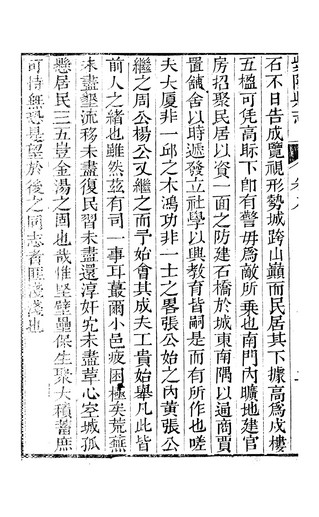 石不日告成覽視形勢城跨山巔而民居其下據高爲戍樓
五楹可凭高眎下卽有警毋爲敵所乗也南門內曠地建官
房招聚民居以資一面之防建石橋於城東南隅以通商賈
置舖舍以時遞發立社學以興教育皆嗣是而有所作也嗟
夫大厦非一邱之木鴻功非一士之畧張公始之內黃張公
繼之周公楊公又繼之而予始會其成夫工貴始舉凡此皆
前人之緒也雖然茲有司一事耳蕞爾小邑疲困極矣荒蕪
未盡墾流移未盡復民習未盡還淳奸宄未盡革心室城孤
懸居民三五豈金湯之固也哉惟堅壁壘保生聚大積蓄庶
可恃無恐是望於後之同志者匪淺淺也